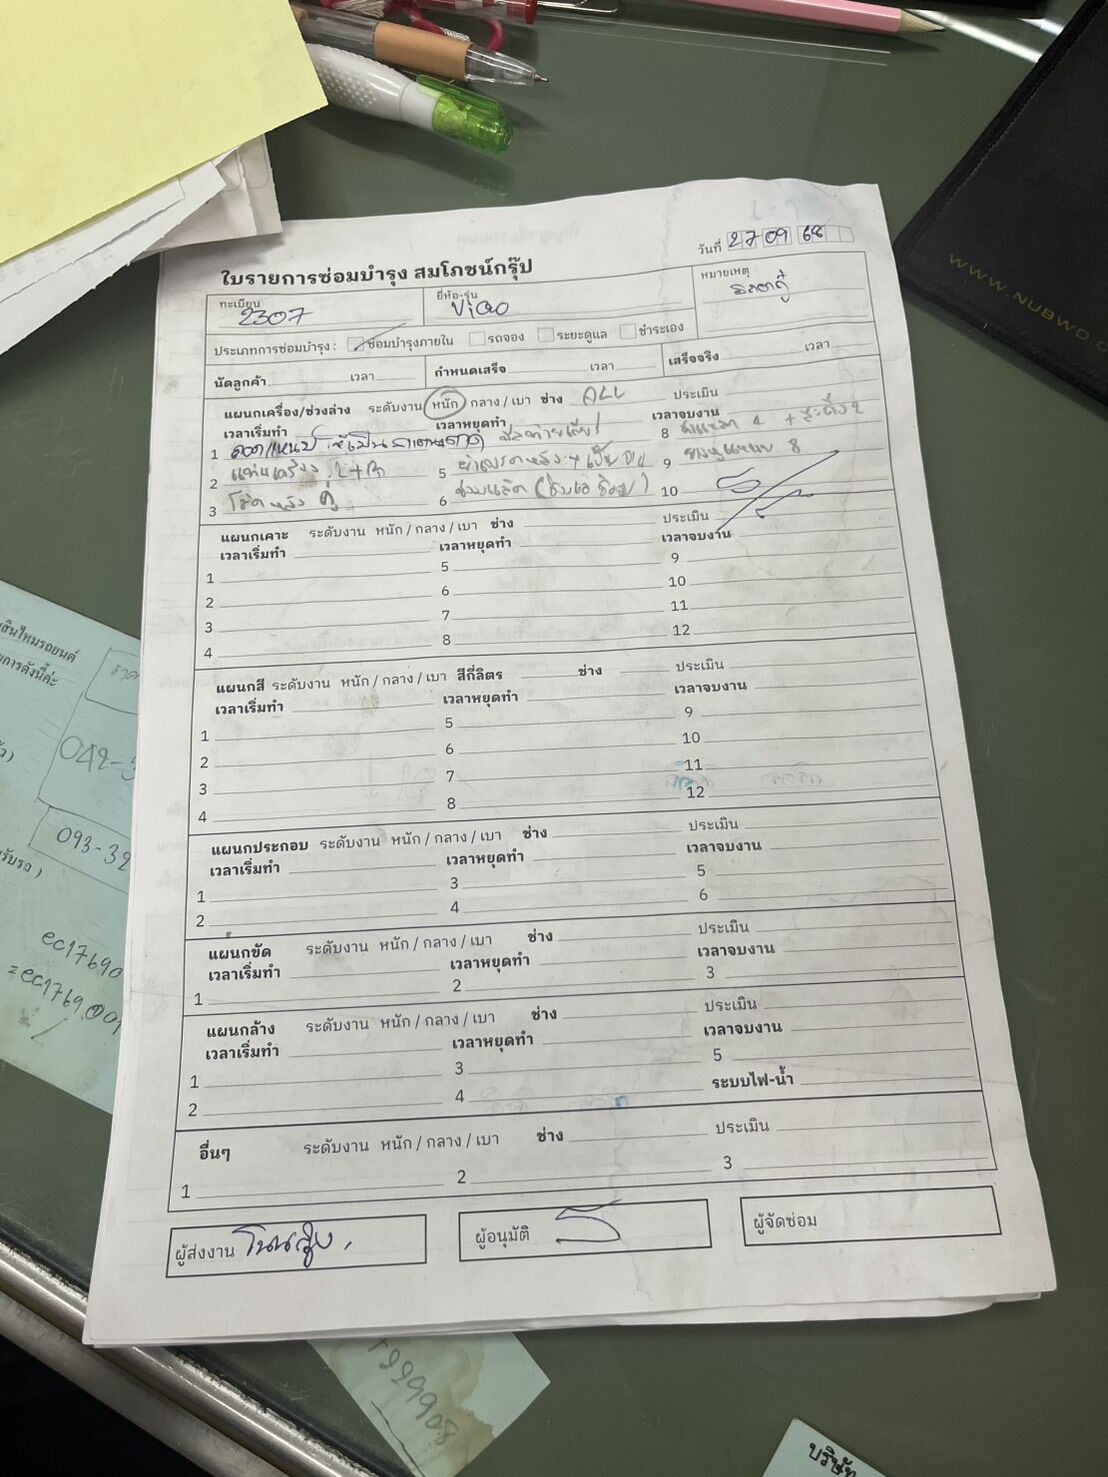 WWW.NUBWO.C
วันที่ 27 09 68
ใบรายการซ่อมบำรุง สมโภชน์กรุ๊ป
ทะเบียน 2307 ยี่ห้อ-รุ่น ViGO หมายเหตุ
ประเภทการซ่อมบำรุง : ซ่อมบำรุงภายใน รถจอง ระยะดูแล ชำระเอง
นัดลูกค้า เวลา กำหนดเสร็จ เวลา เสร็จจริง เวลา
แผนกเครื่อง/ช่วงล่าง ระดับงาน หนัก / กลาง / เบา ช่าง ALL ประเมิน
เวลาเริ่มทำ เวลาหยุดทำ เวลาจบงาน
1 8
2 แท่นเครื่อง 2+1 5 9
3 โช๊คหลัง คู่ 6 10
แผนกเคาะ ระดับงาน หนัก / กลาง / เบา ช่าง ประเมิน
เวลาเริ่มทำ เวลาหยุดทำ เวลาจบงาน
1 5 9
2 6 10
3 7 11
4 8 12
แผนกสี ระดับงาน หนัก / กลาง / เบา สีกี่ลิตร ช่าง ประเมิน
เวลาเริ่มทำ เวลาหยุดทำ เวลาจบงาน
1 5 9
2 6 10
3 7 11
4 8 12
แผนกประกอบ ระดับงาน หนัก / กลาง / เบา ช่าง ประเมิน
เวลาเริ่มทำ เวลาหยุดทำ เวลาจบงาน
1 3 5
2 4 6
แผนกขัด ระดับงาน หนัก / กลาง / เบา ช่าง ประเมิน
เวลาเริ่มทำ เวลาหยุดทำ เวลาจบงาน
1 2 3
แผนกล้าง ระดับงาน หนัก / กลาง / เบา ช่าง ประเมิน
เวลาเริ่มทำ เวลาหยุดทำ เวลาจบงาน
1 3 5
2 4 ระบบไฟ-น้ำ
อื่นๆ ระดับงาน หนัก / กลาง / เบา ช่าง ประเมิน
1 2 3
ผู้ส่งงาน โนนสูง ผู้อนุมัติ ผู้จัดซ่อม
สินไหมรถยนต์
การดังนี้ค่ะ
042-3
093-32
รับรถ )
ec17690
=ec1769001
1999908
บริษัท